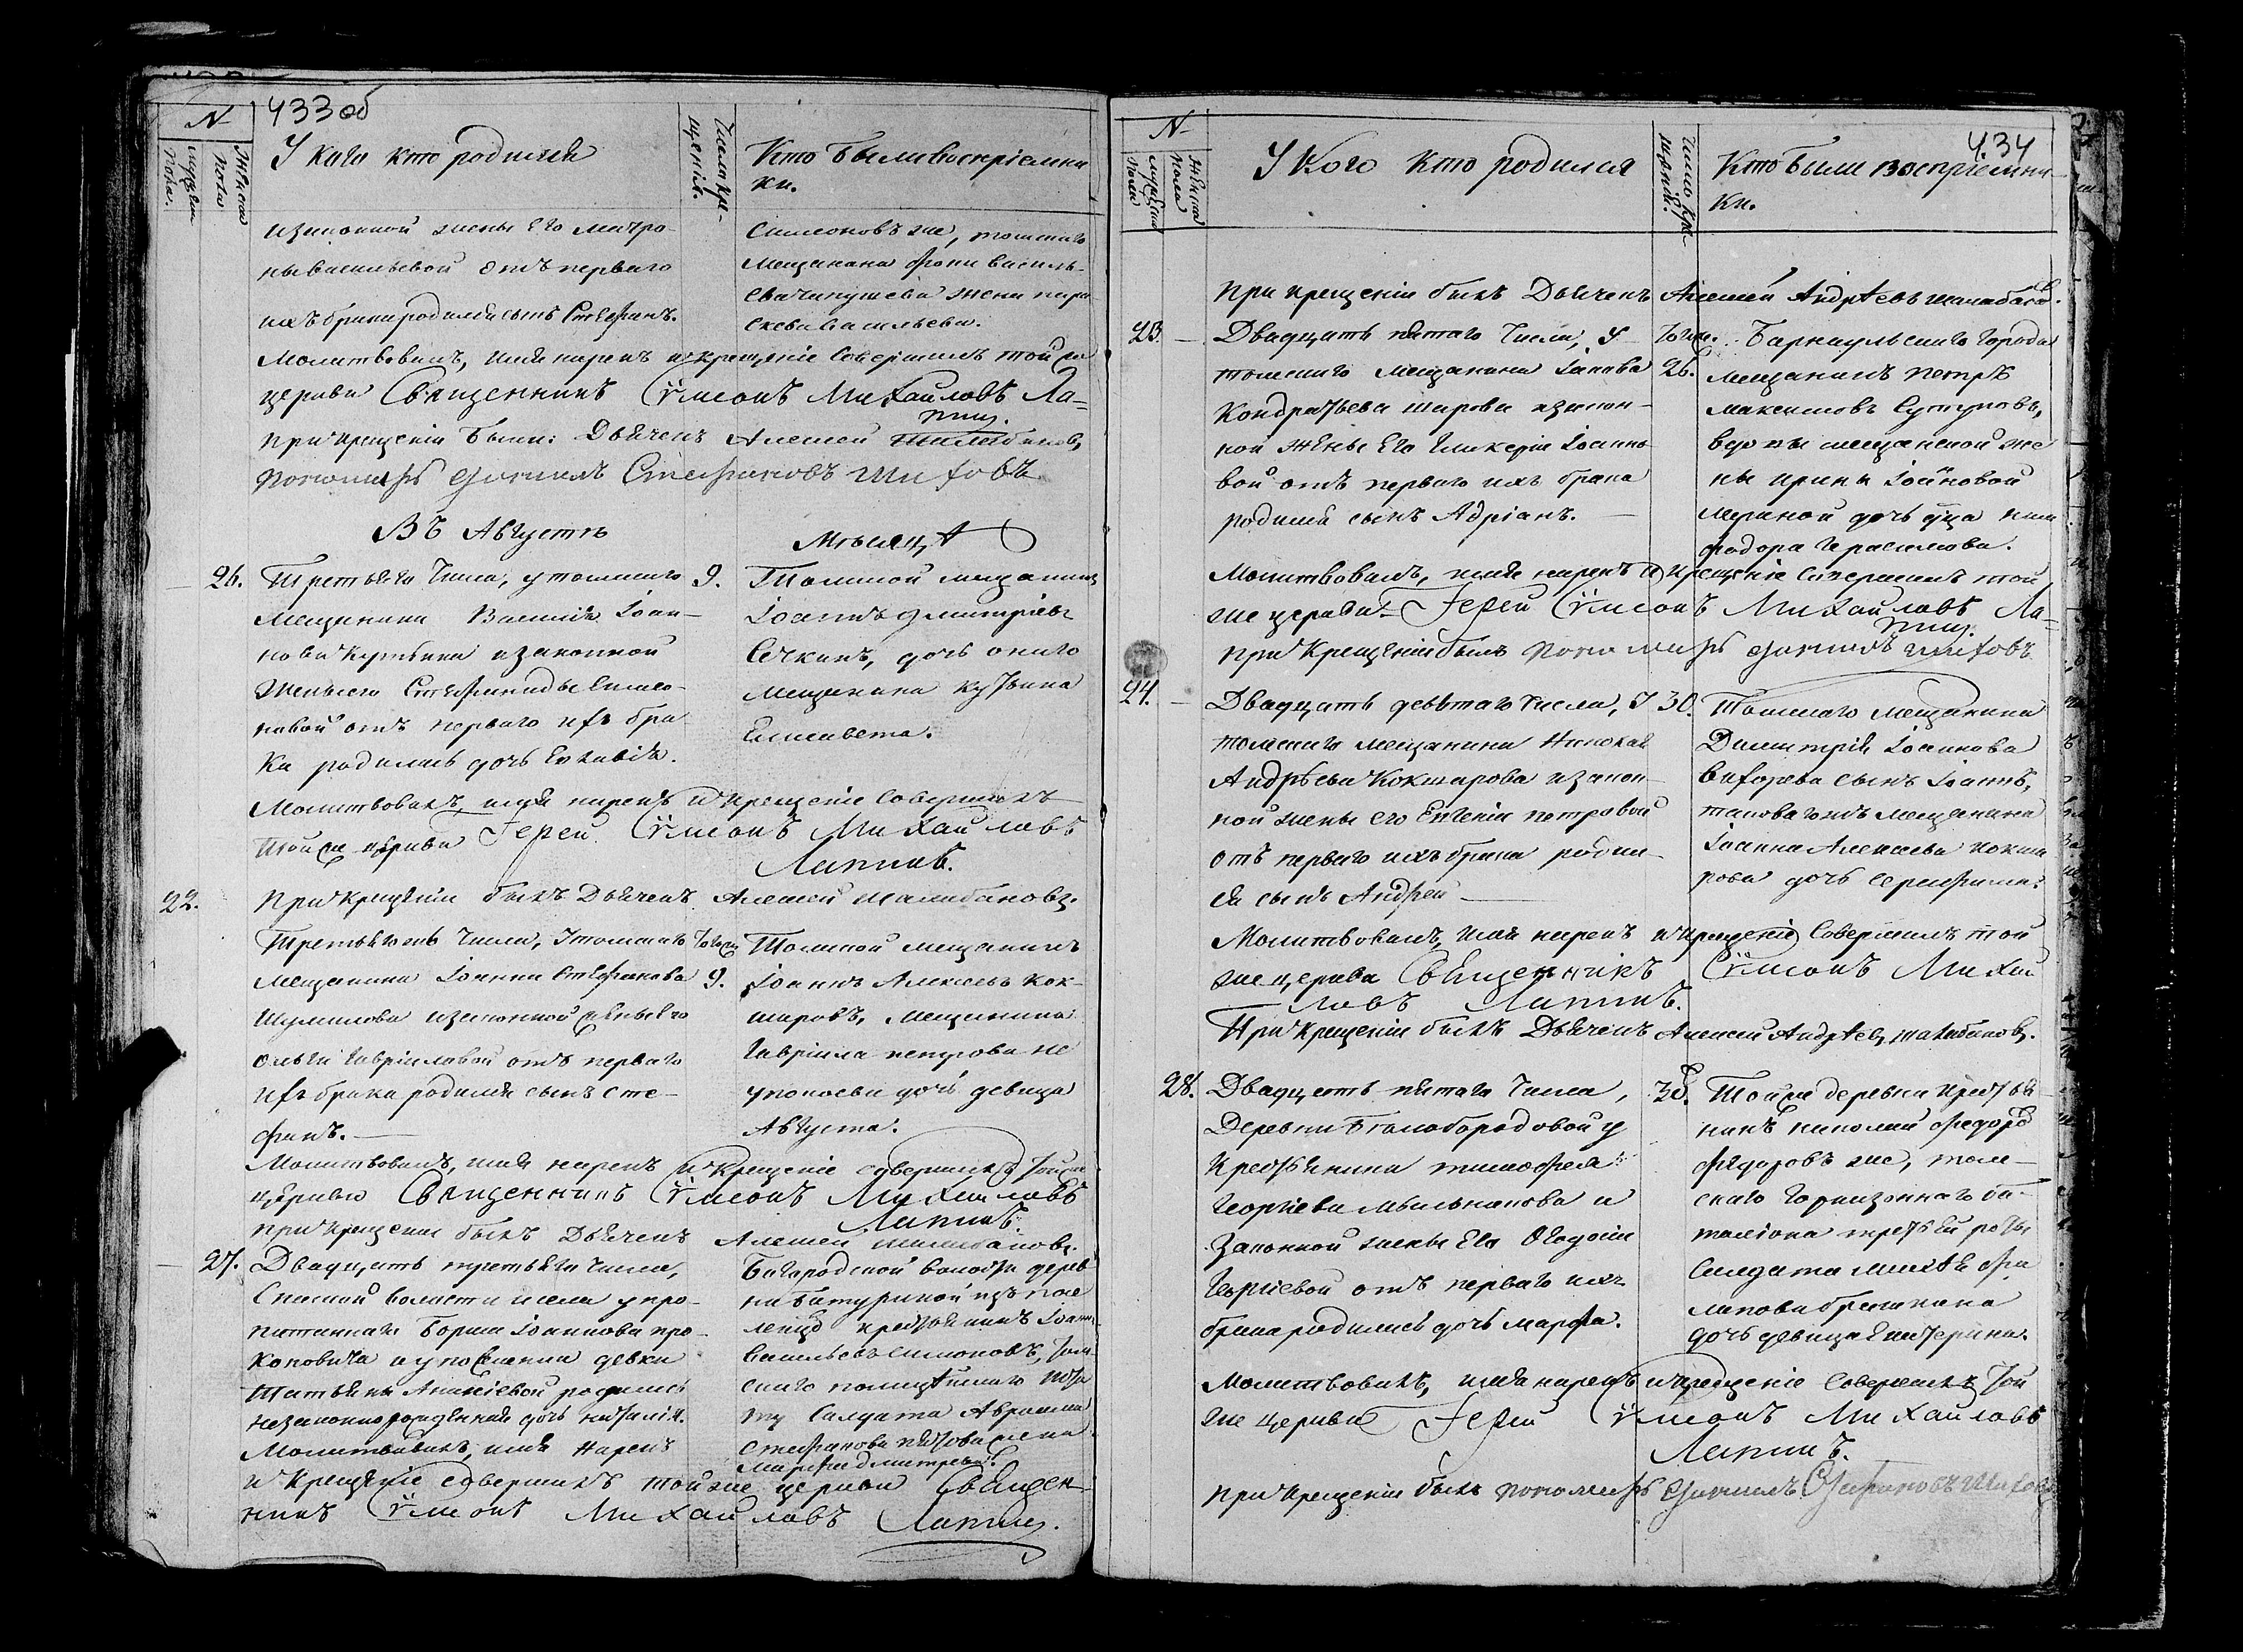 433 об
N
Мужеска пола.
Женска пола
У кого кто родился
Число крещенія.
Кто были воспріемни
ки.
и законной жены его Матро
ны Васильевой отъ перваго
ихъ брака родился сынъ Стефанъ.
Симеоновъ же, томскаго
Мещанина Василь
ева жена Пара
скева Васильева.
Молитвовалъ, имя нарекъ и крещеніе совершилъ той же
церкви Священникъ Сѵмеонъ Михайловъ Ла=
пинъ.
При крещеніи были: Дьячекъ Алексей
Пономарь Стефановъ Шиховъ
Въ Августѣ
Мѣсяцѣ
26.
Третьяго числа, у томскаго
9.
Мещанина Василія Іоан-
нова и законной
жены его Стефаниды Симео-
новой отъ перваго ихъ бра
ка родилась дочь Евлавія.
Томской мещанинъ
Іоаннъ Дмитріевъ
Сѣчкинъ, дочь онаго
Мещанина
Елисавета.
Молитвовалъ, имя нарекъ и крещеніе совершилъ
той же церкви Іерей Сѵмеонъ Михайловъ
Лапинъ.
При крещеніи былъ Дьячекъ Алексей Шалабановъ.
22.
Третьяго числа, у томскаго
Тогожъ
9.
Мещанина Іоанна Стефанова
Шумилова и законной жены его
Ольги Гавріиловой отъ перваго
ихъ брака родился сынъ Сте-
фанъ.
Томской мещанинъ
Іоаннъ Алексѣевъ Кок-
шаровъ, Мещанина
Гавріила Петрова Не
упокоева дочь девица
Августа.
Молитвовалъ, имя нарекъ и крещеніе совершилъ той же
церкви Священникъ Сѵмеонъ Михайловъ
Лапинъ.
При крещеніи былъ Дьячекъ Алексей Шалабановъ.
27.
Двадцать третьяго числа,
Спаской волости села у про-
питаннаго Бориса Іоаннова Про-
коповича и у поселенки девки
Татьяны Ананіевой родилась
незаконнорожденная дочь Наталія.
Богородской волости дерев
ни Батуриной изъ посе
ленцевъ крестьянинъ Іоаннъ
Васильевъ Симоновъ, Том
скаго
Солдата Авраама
Стефанова жена
Марфа Дмитрева.
Молитвовалъ, имя нарекъ
и крещеніе совершилъ той же церкви Священ-
никъ Сѵмеонъ Михайловъ Лапинъ.
434
N
Мужеска пола
Женска пола
У кого кто родился
Число крещеній.
Кто были воспріемни
ки.
При крещеніи былъ Дьячекъ Алексей Андрѣевъ Шалабановъ.
23.
Двадцать пятаго числа, у
Тогож.
26.
томскаго мещанина Іакова
Кондратьева Шарова и закон-
ной жены его Гликеріи Іоанно
вой отъ перваго ихъ брака
родился сынъ Адріанъ.
Барнаульскаго города
Мещанинъ Петръ
Максимовъ Сутуповъ,
вдовы мещанской же
ны Ирины Іоанновой
дочь
Федора Герасимова.
Молитвовалъ, имя нарекъ и крещеніе совершилъ той
же церкви Іерей Сѵмеонъ Михайловъ Ла=
пинъ.
При крещеніи былъ Пономарь Шиховъ
24.
Двадцать девятаго числа, у
30.
томскаго мещанина Николая
Андрѣева Кокшарова и закон-
ной жены его Евгеніи Петровой
отъ перваго ихъ брака родил-
ся сынъ Андрей
Томскаго мещанина
Димитрія Іоаннова
Вихорева сынъ Іоаннъ,
таковагожъ мещанина
Іоанна Алексѣева Кокша
рова дочь Серафима.
Молитвовалъ, имя нарекъ и крещеніе совершилъ той
же церкви Священникъ Сѵмеонъ Михай
ловъ Лапинъ.
При крещеніи былъ Дьячекъ Алексей Андрѣевъ Шалабановъ.
28.
Двадцать пятаго числа,
30.
Деревни Белобородовой у
крестьянина Тимофея
Георгіева Мыльникова и
законной жены его Евдокіи
Георгіевой отъ перваго ихъ
брака родилась дочь Марфа.
Той же деревни крестья
нинъ Николай Федоро
Федоровъ же, том-
скаго гарнизоннаго ба-
таліона третьей роты
Солдата
дочь девица Екатерина.
Молитвовалъ, имя нарекъ и крещеніе совершилъ той
же церкви Іерей Сѵмеонъ Михайловъ
Лапинъ.
При крещеніи былъ Пономарь Стефановъ Шиховъ